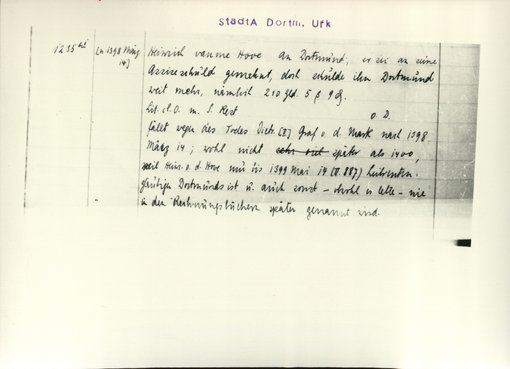 StadtA Dortm. Urk
1235 [n 1398 März 14] Heinrich vanme Hove an Dortmund; er sei an seine
gemahnt, doch schulde ihm Dortmund
weit mehr, nämlich 210 gld. 5 ß 9 ₰.
m. S. Rest o. D.
fällt wegen des Todes Dietr. [II] Graf v. d. Mark nach 1398
März 14; wohl nicht später als 1400,
weil Heinr. v. d. Hove nur bis 1399 Mai 14
Dortmunds ist u. auch sonst - obwohl er lebte - nie
in den Rechnungsbüchern später genannt wird.